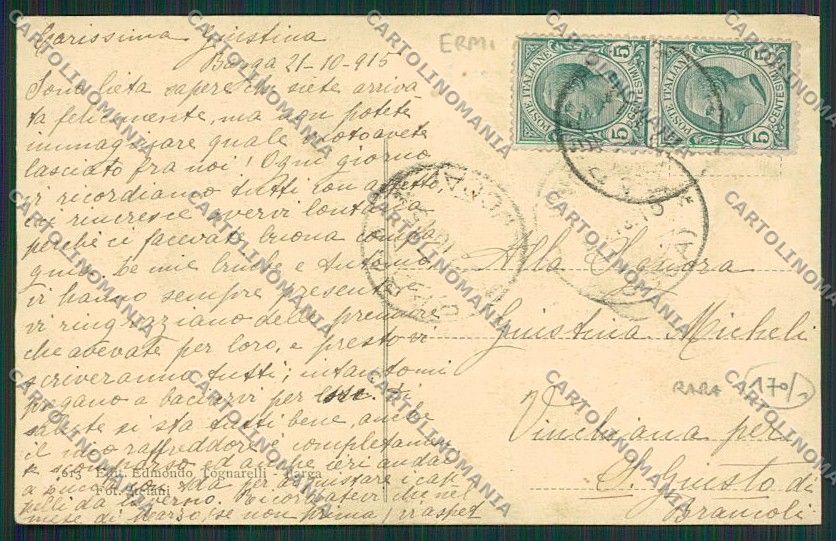 Carissima Giustina
ERMI
Barga 21-10-915
Sono lieta sapere che siete arriva
ta felicemente, ma non potete
immaginare quale vuoto avete
lasciato fra noi! Ogni giorno
vi ricordiamo tutti con affetto,
ci rincresce avervi lontana
perchè ci facevate buona compa
gnia. Le mie bimbe e Antonio
vi hanno sempre presente e
vi ringraziano delle premure
che avevate per loro, e presto vi
scriveranno tutti; intanto mi
pregano a baciarvi per loro. Di
salute si sta tutti bene, anche
il mio raffreddore è completamen
te scomparso ed anche ieri andai
a Lucca con Ada per acquistare i cap
pelli da inverno. Ricordatevi che nel
mese di Marzo, se non prima, vi aspet
POSTE ITALIANE
CENTESIMI
5
5
POSTE ITALIANE
CENTESIMI
5
5
BARGA
LUCCA
Alla Signora
Giustina Micheli
RARA 170/-
Vinchiana per
S. Giusto di
Brancoli
613 - Ediz. Edmondo Tognarelli - Barga
CARTOLINOMANIA